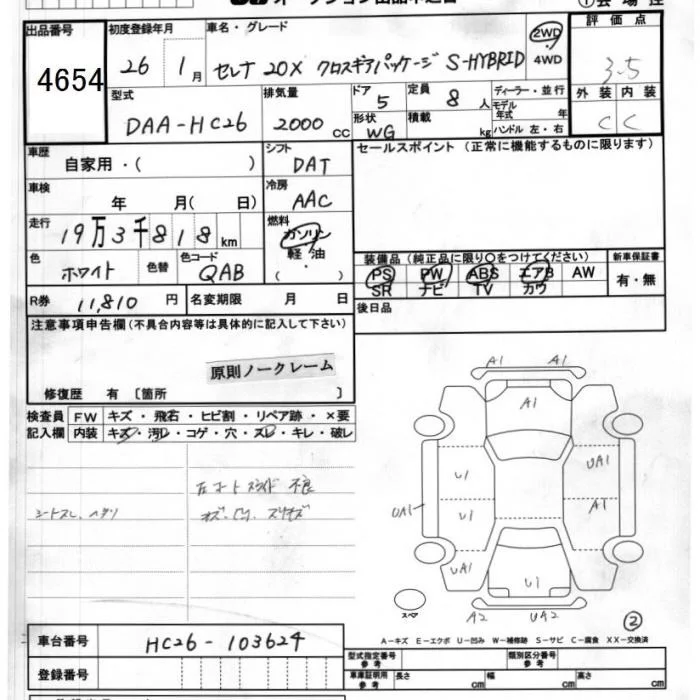 オークション出品申込書
①会場控
出品番号
4654
初度登録年月
26 1月
車名・グレード
セレナ 20X クロスギアパッケージ S-HYBRID
2WD
4WD
評価点
3.5
型式
DAA-HC26
排気量
2000cc
ドア
5
定員
8人
ディーラー・並行
形状
WG
積載
kg
モデル年式 年
ハンドル 左・右
外装 内装
C C
車歴
自家用・( )
シフト
DAT
セールスポイント (正常に機能するものに限ります)
車検
年 月( 日)
冷房
AAC
走行
19万3千818km
燃料
ガソリン
軽油
( )
色
ホワイト
色替
色コード
QAB
装備品(純正品に限り○をつけてください)
新車保証書
PS PW ABS エアB AW
SR ナビ TV カワ
有・無
R券
11,810円
名変期限 月 日
後日品
注意事項申告欄(不具合内容等は具体的に記入して下さい)
原則ノークレーム
修復歴 有 〔箇所 〕
検査員
記入欄
FW キズ・飛石・ヒビ割・リペア跡・×要
内装 キズ・汚レ・コゲ・穴・スレ・キレ・破レ
不良
シートスレ、ヘタリ
A1 A1
A1
U1 UA1
UA1 U1 A1
UA1 U1
スペア
A2 UA2
②
A-キズ E-エクボ U-凹み W-補修跡 S-サビ C-腐食 XX-交換済
車台番号
HC26-103624
登録番号
型式指定番号
参考
類別区分番号
参考
車庫証明用
参考
長さ cm 幅 cm 高さ cm